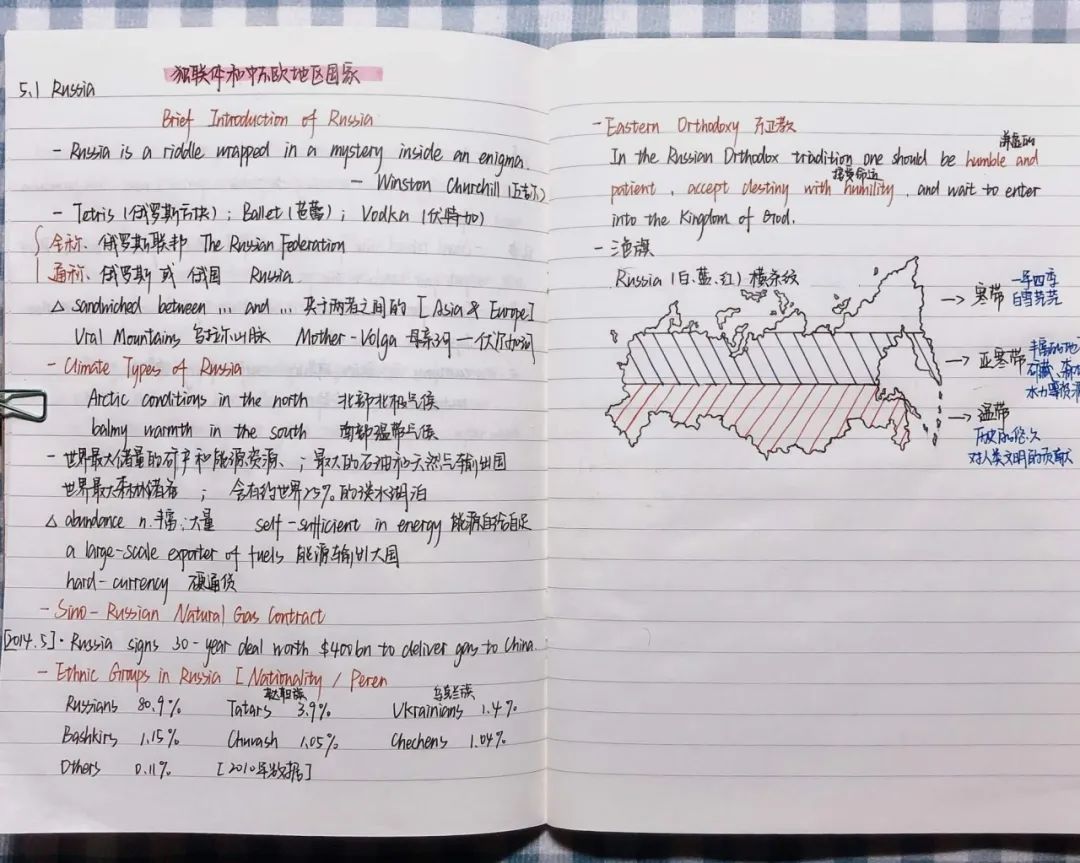 独联体和中东欧地区国家
5.1 Russia
Brief Introduction of Russia
- Russia is a riddle wrapped in a mystery inside an enigma.
- Winston Churchill (丘吉尔)
- Tetris (俄罗斯方块); Ballet (芭蕾); Vodka (伏特加)
全称、俄罗斯联邦 The Russian Federation
通称、俄罗斯 或 俄国 Russia.
△ sandwiched between ... and ... 夹于两者之间的 [Asia & Europe]
Ural Mountains 乌拉尔山脉 Mother-Volga 母亲河—伏尔加河
- Climate Types of Russia
Arctic conditions in the north 北部北极气候
balmy warmth in the south 南部温带气候
- 世界最大储量的矿产和能源资源、; 最大的石油和天然气输出国
世界最大森林储备 ; 含有约世界25%的淡水湖泊
△ abundance n.丰富;大量 self-sufficient in energy 能源自给自足
a large-scale exporter of fuels 能源输出大国
hard-currency 硬通货
- Sino-Russian Natural Gas Contract
[2014.5]·Russia signs 30-year deal worth $400bn to deliver gas to China.
- Ethnic Groups in Russia [Nationality / Peren
鞑靼族 乌克兰族
Russians 80.9% Tatars 3.9% Ukrainians 1.4%
Bashkirs 1.15% Chuvash 1.05% Chechens 1.04%
Others 0.11% [2010年数据]
- Eastern Orthodoxy 东正教
谦虚的
In the Russian Orthodox tradition one should be humble and
接受命运
patient, accept destiny with humility, and wait to enter
into the Kingdom of God.
- 国旗
Russia (白、蓝、红) 横条纹
→ 寒带 一年四季
白雪茫茫
→ 亚寒带 丰富的地
矿藏、森
水力等资源
→ 温带
历史的悠久
对人类文明的贡献